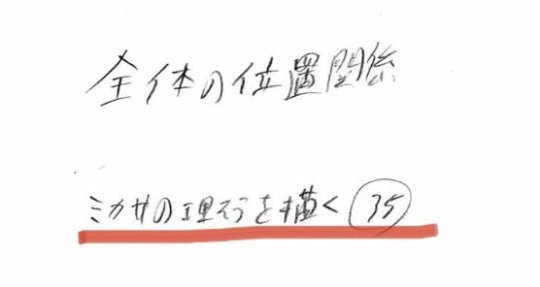 全体の位置関係
ミカサの理そうを描く 35